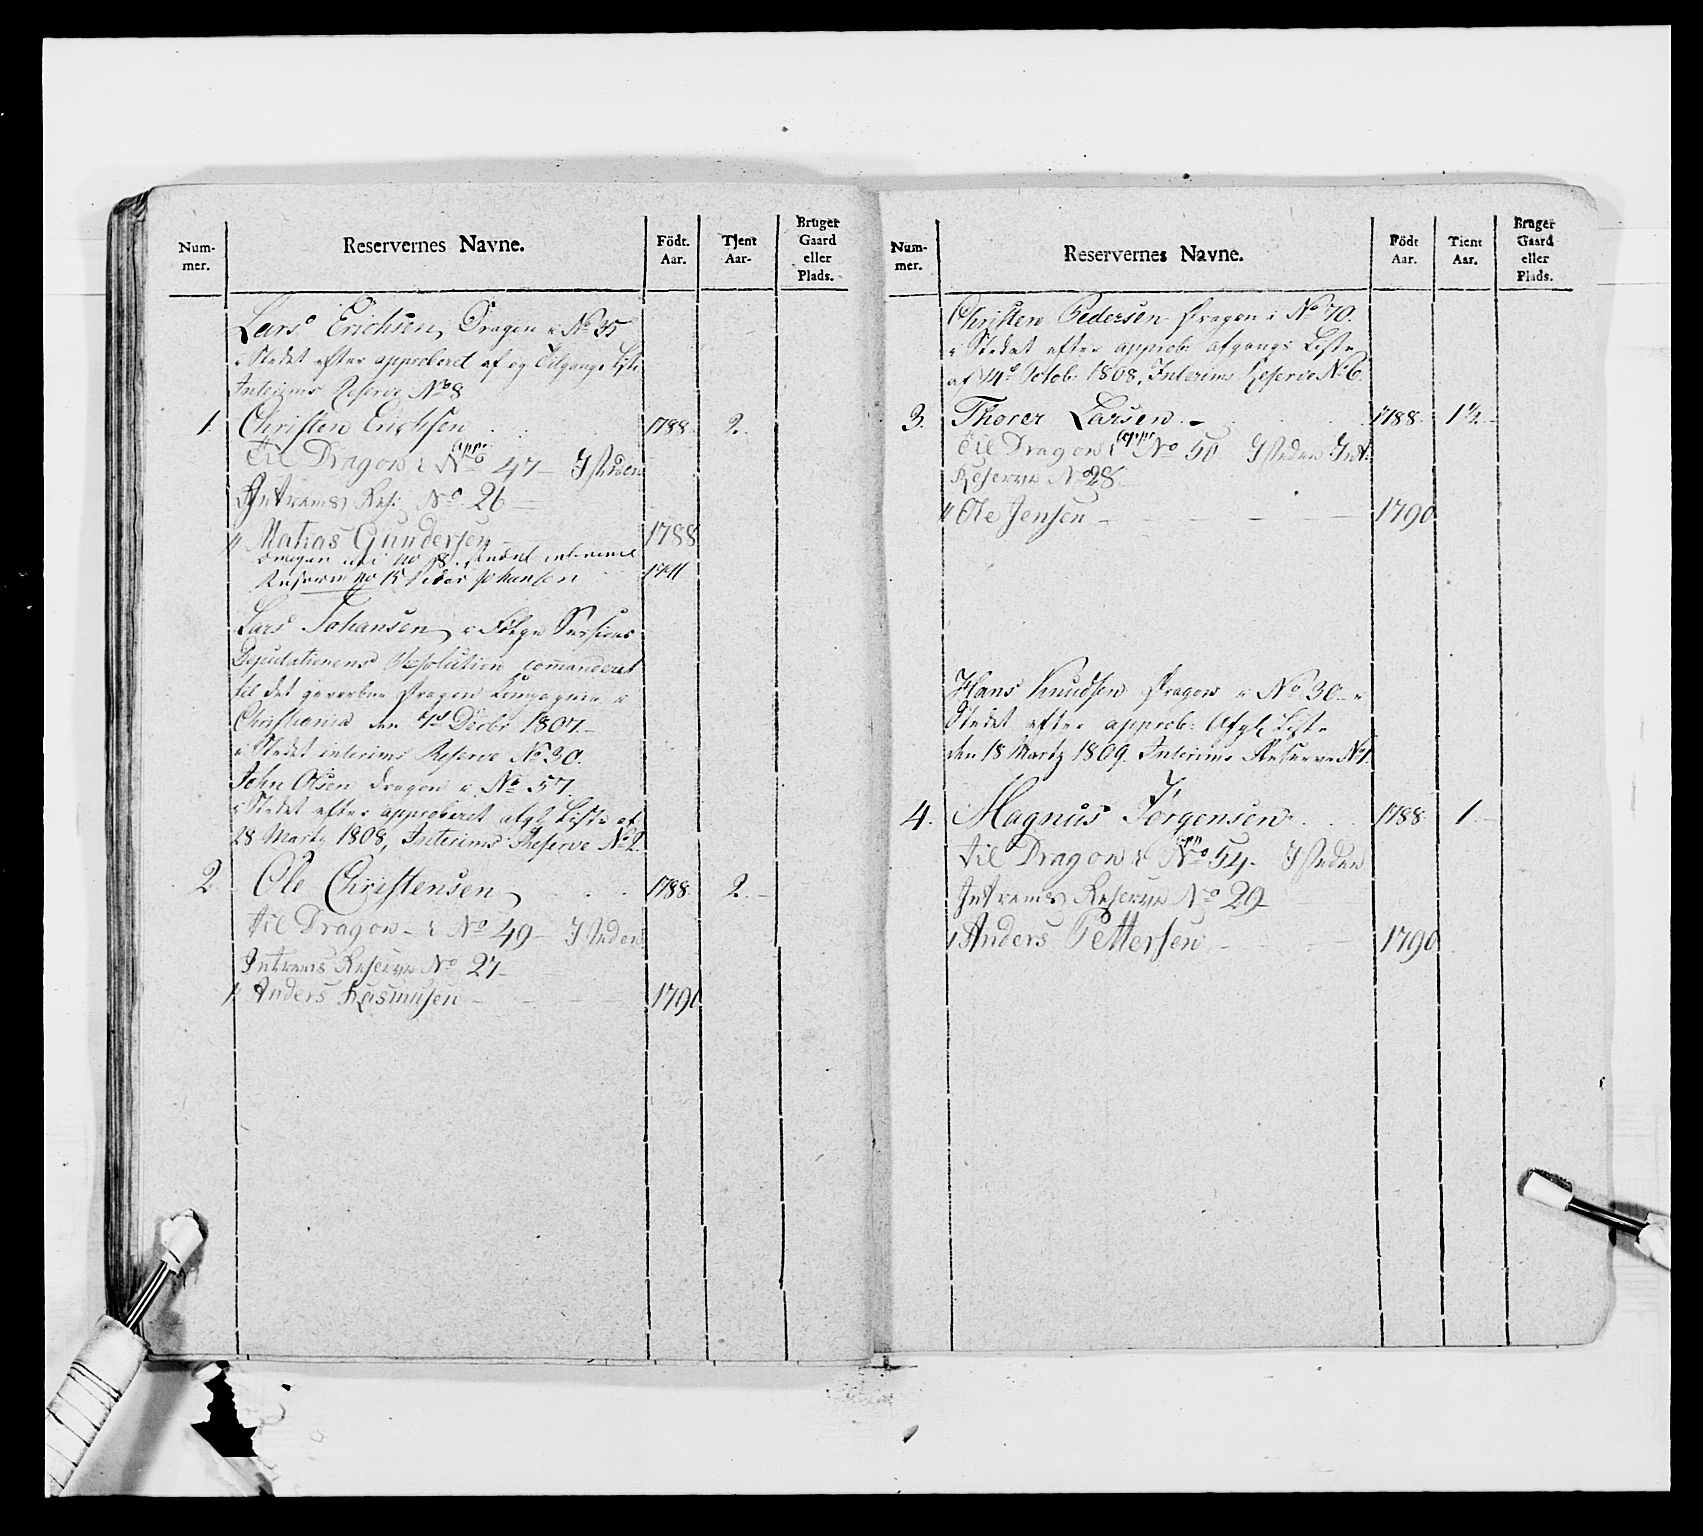 Num-
mer.
Reservernes Navne.
Födt.
Aar.
Tjent
Aar.
Bruger
Gaard
eller
Plads.
Lars Erichsen, Dragon i No 35
i Stedet efter approberet af og Tilgangs Liste
Interims Reserve No 8
1. Christen Erichsen 1788. 2.
appr.
til Dragon i No 47 - Isteden
Intrems Res: No 26
" Matias Gundersen 1788
no 15 Johansen
Lars Johansen, i Følge Sessions
Deputationens Resolution comanderet
til det gevorbne Dragon Compagnie i
Christiania den 4d Decbr 1807.
i Stedet interims Reserve No 30.
John Olsen dragon i No 57.
i Stedet efter approberet afgl Liste af
28 Martz 1808, Interims Reserve No 2.
2. Ole Christensen 1788. 2.
til Dragon - i No 49 - Isteden
Intrems Reserve No 27
" Anders Rasmusen 1790
Num-
mer.
Reservernes Navne.
Födt
Aar.
Tient
Aar.
Bruger
Gaard
eller
Plads.
Christen Pedersen Dragon i No 70.
i Stedet efter approb: afgangs Liste
af 14d Octob: 1808, Interims Reserve No 6.
3. Thorer Larsen 1788. 1½
appr
til Dragon i No 50 Isteden Int:
Reserve No 28
" Ole Jensen 1790
Hans Knudsen Dragon i No 30 i
Stedet efter approb: Afgl Liste
den 18 Martz 1809. Interims Reserve No 1.
4. Magnus Jörgensen 1788 1.
appr
til Dragon i No 54 - Isteden
Intrems Reserve No 29
" Anders Pettersen 1790